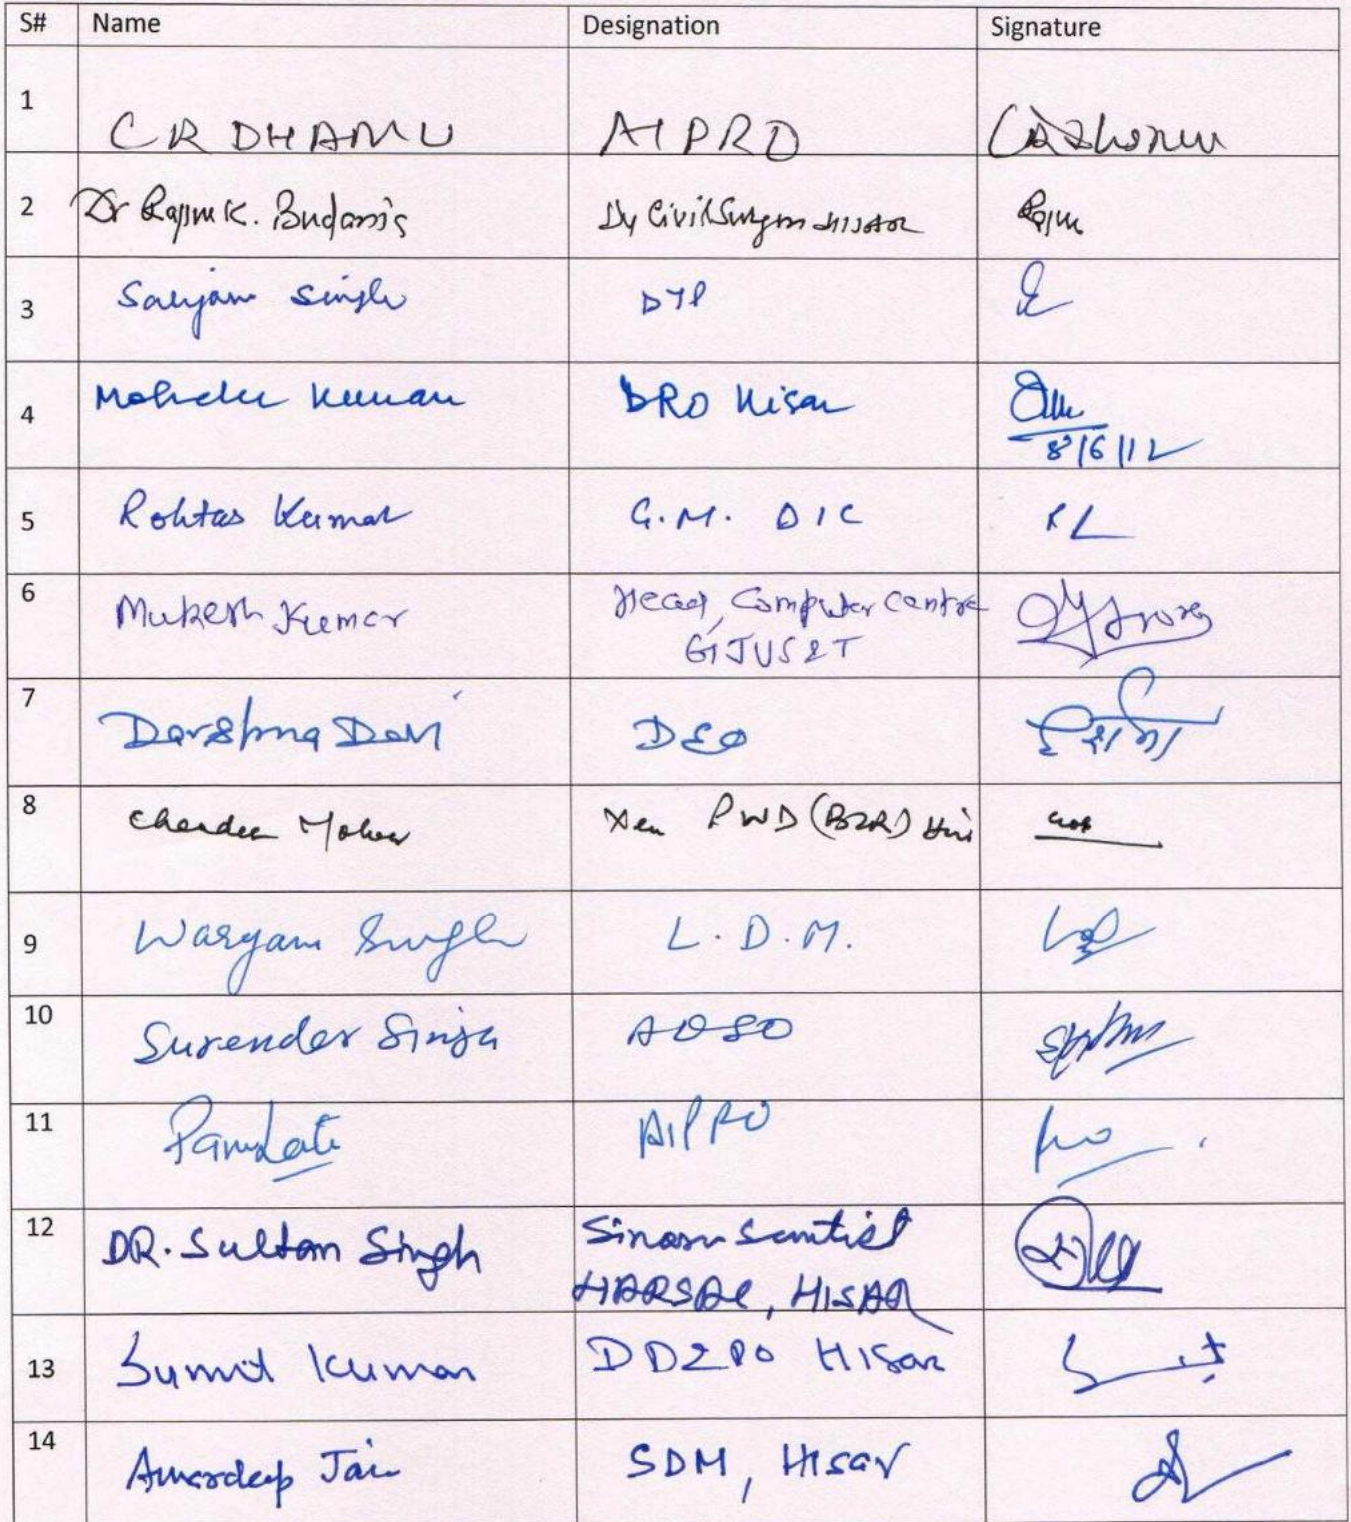 S# Name Designation Signature
1 CR DHAMU AIPRO CRDhamu
2 Dr Rajiv K. Budania Dy Civil Surgeon HISAR
3 Sanjam Singh DTP
4 Mohinder Kumar DRO Hisar
8/6/12
5 Rohtas Kumar G.M. DIC RL
6 Mukesh Kumar Head, Computer Centre
GJUS&T
7 Darshna Devi DEO दर्शना
8 Chander Mohan Xen PWD (B&R) His
9 Waryam Singh L.D.M.
10 Surender Singh
11 AIPRO
12 DR. Sultan Singh
HARSAC, HISAR
13 Sumit Kumar Hisar
14 Amardeep Jain SDM, Hisar